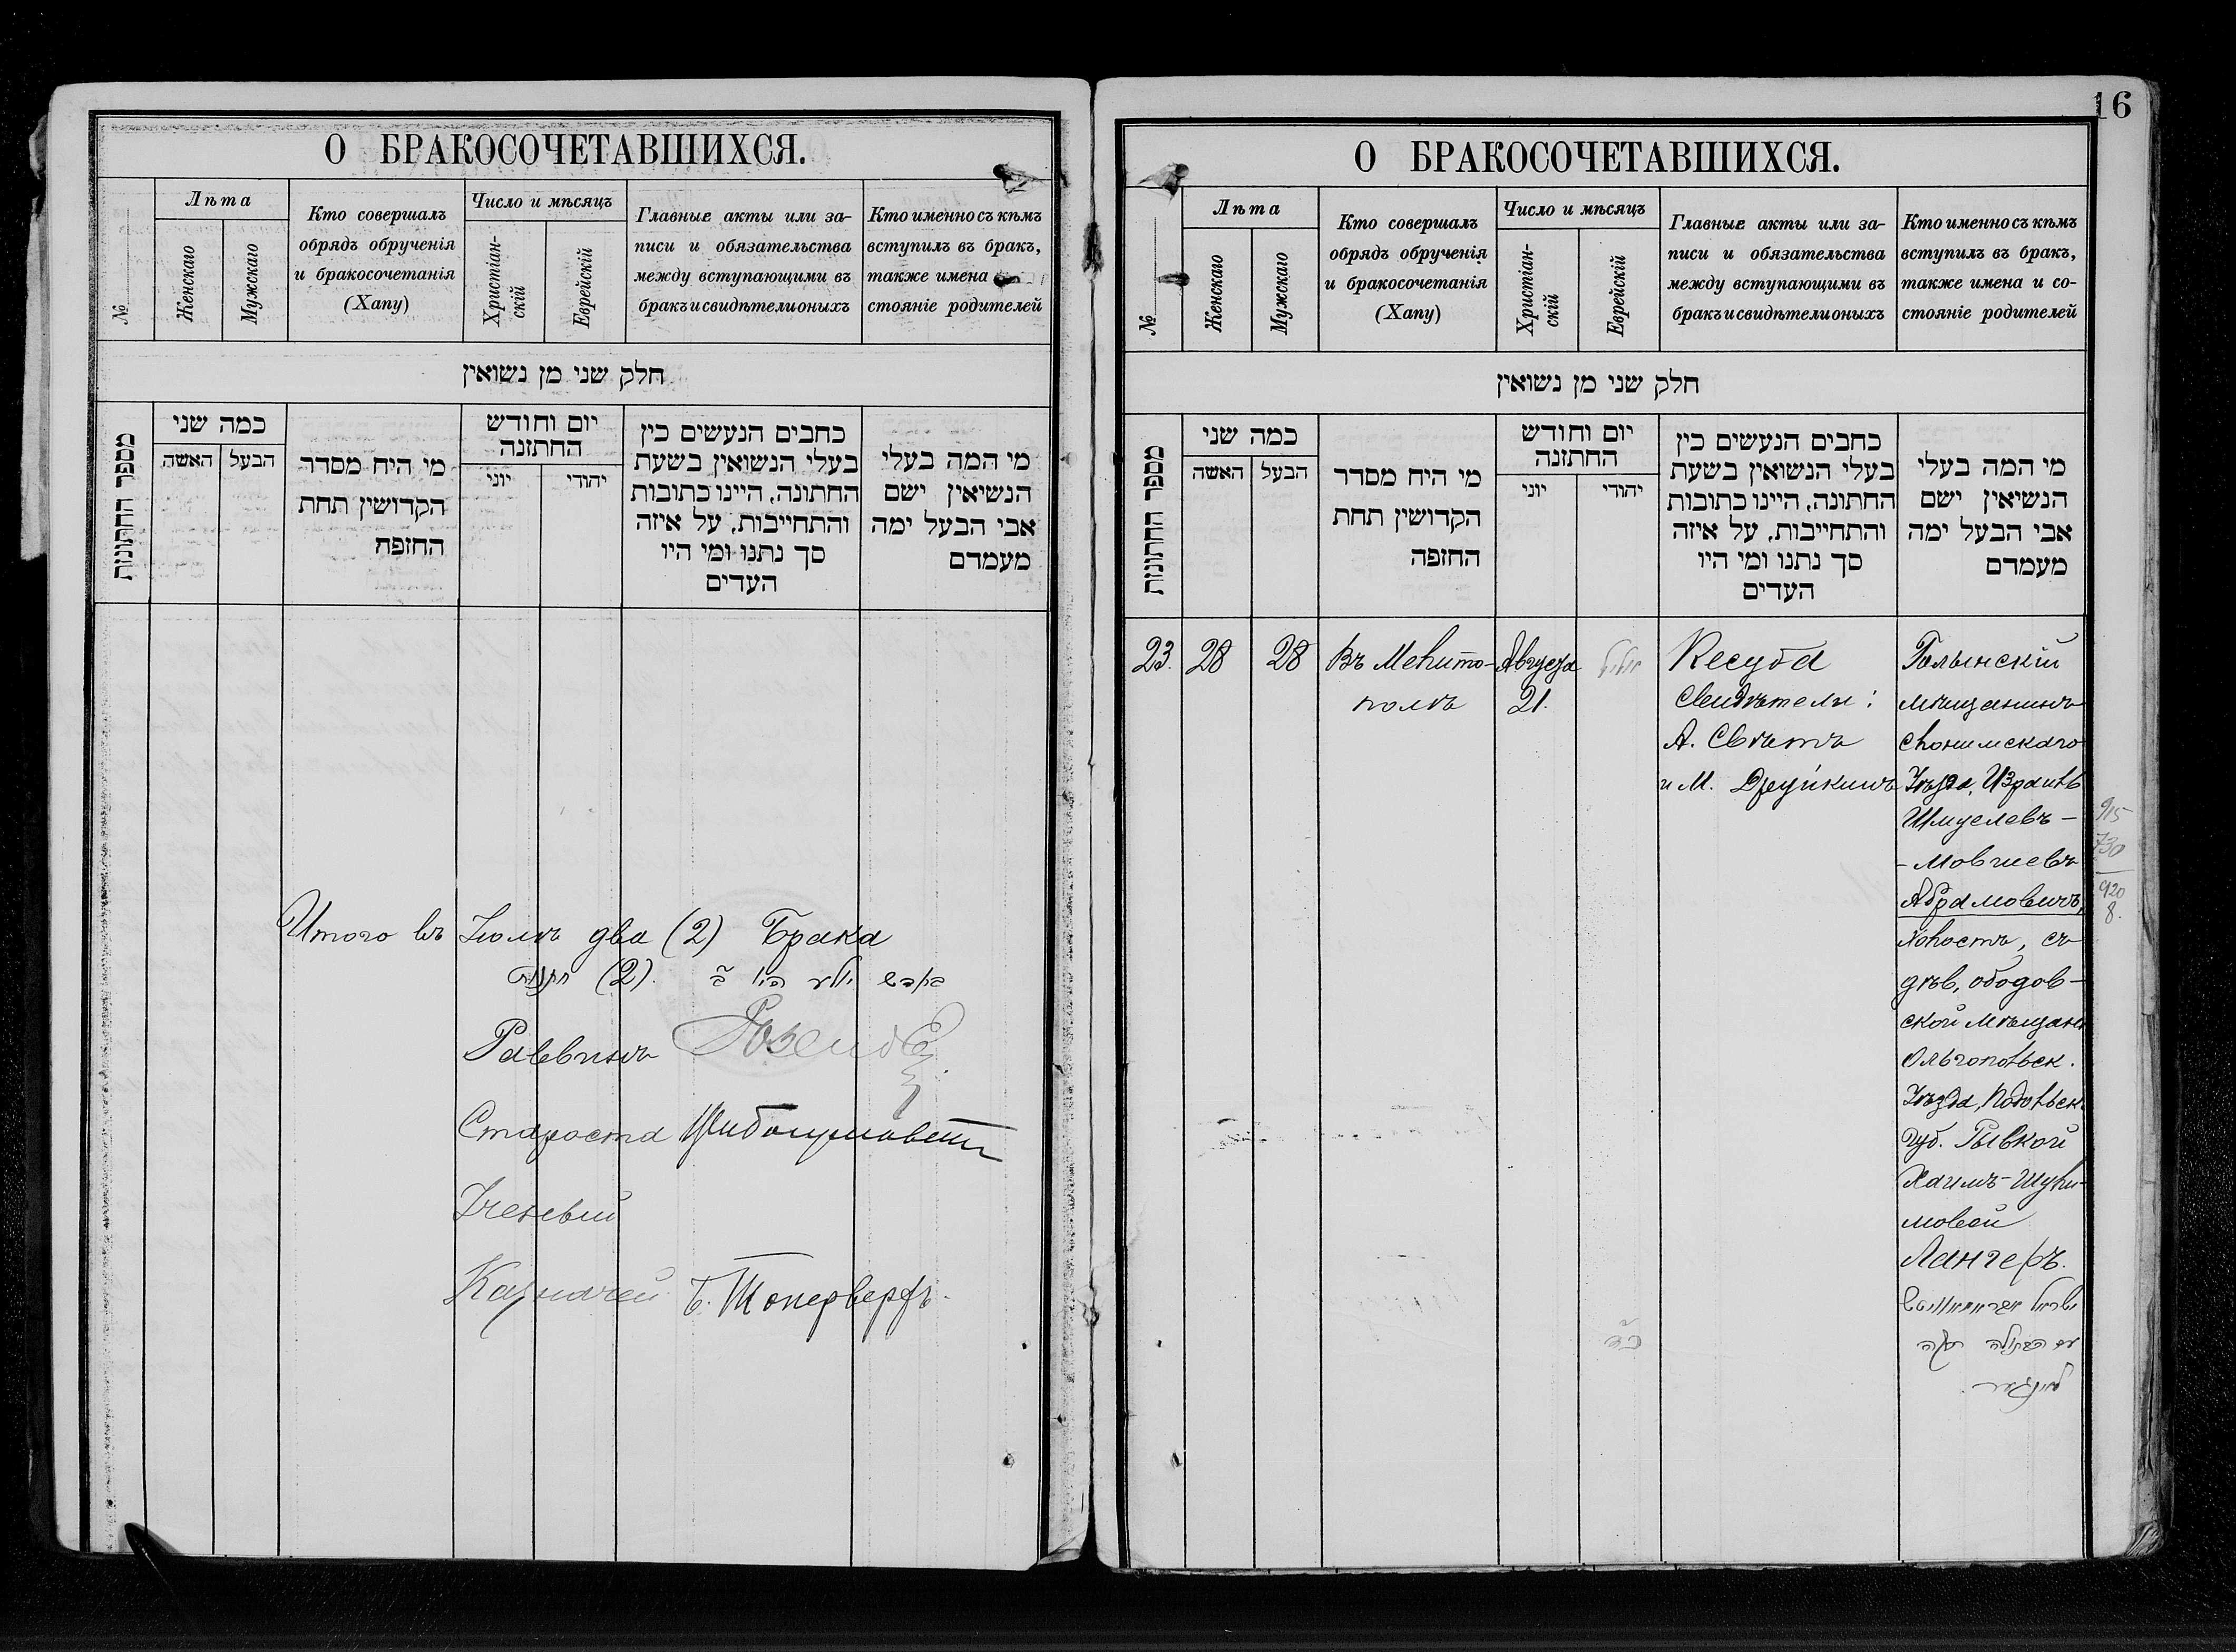 О БРАКОСОЧЕТАВШИХСЯ.
№
Лѣта
Женскаго
Мужскаго
Кто совершалъ
обрядъ обрученія
и бракосочетанія
(Хапу)
Число и мѣсяцъ
Христіан-
скій
Еврейскій
Главные акты или за-
писи и обязательства
между вступающими въ
бракъ и свидѣтели оныхъ
Кто именно съ кѣмъ
вступилъ въ бракъ,
также имена
стояніе родителей
חלק שני מן נשואין
מספר החתונות
כמה שני
האשה
הבעל
מי היח מסדר
הקדושין תחת
החופה
יום וחודש
החתונה
יוני
יהודי
כתבים הנעשים בין
בעלי הנשואין בשעת
החתונה, היינו כתובות
והתחייבות, על איזה
סך נתנו ומי היו
העדים
מי המה בעלי
הנשיאין ישם
אבי הבעל ימה
מעמדם
Итого въ Іюлѣ два (2) Брака
בחדש יולי היו ב (2) חתונות
Раввинъ
Староста
Ученый
Казначей Б. Топерверфъ
16
О БРАКОСОЧЕТАВШИХСЯ.
№
Лѣта
Женскаго
Мужскаго
Кто совершалъ
обрядъ обрученія
и бракосочетанія
(Хапу)
Число и мѣсяцъ
Христіан-
скій
Еврейскій
Главные акты или за-
писи и обязательства
между вступающими въ
бракъ и свидѣтели оныхъ
Кто именно съ кѣмъ
вступилъ въ бракъ,
также имена и со-
стояніе родителей
חלק שני מן נשואין
מספר החתונות
כמה שני
האשה
הבעל
מי היח מסדר
הקדושין תחת
החופה
יום וחודש
החתונה
יוני
יהודי
כתבים הנעשים בין
בעלי הנשואין בשעת
החתונה, היינו כתובות
והתחייבות, על איזה
סך נתנו ומי היו
העדים
מי המה בעלי
הנשיאין ישם
אבי הבעל ימה
מעמדם
23.
28
28
Въ Мелито-
полѣ
Августа
21.
אלול
כ״ד
Кесуба
Свидѣтели:
А. Свѣтъ
и М.
Голынскій
мѣщанинъ
Слонимскаго
Уѣзда, Израиль
Шмуелевъ-
-Мовшевъ
Абрамовичъ,
холостъ, съ
дѣв, ободов-
ской мѣщан.
Ольгопольск.
Уѣзда, Подольск.
губ. Рывкой
Хаимъ-Шули-
мовой
Лангеръ.
ישראל אבראמאוויטש
עם הבתולה רבקה
לאנגער
915
730
920
8.